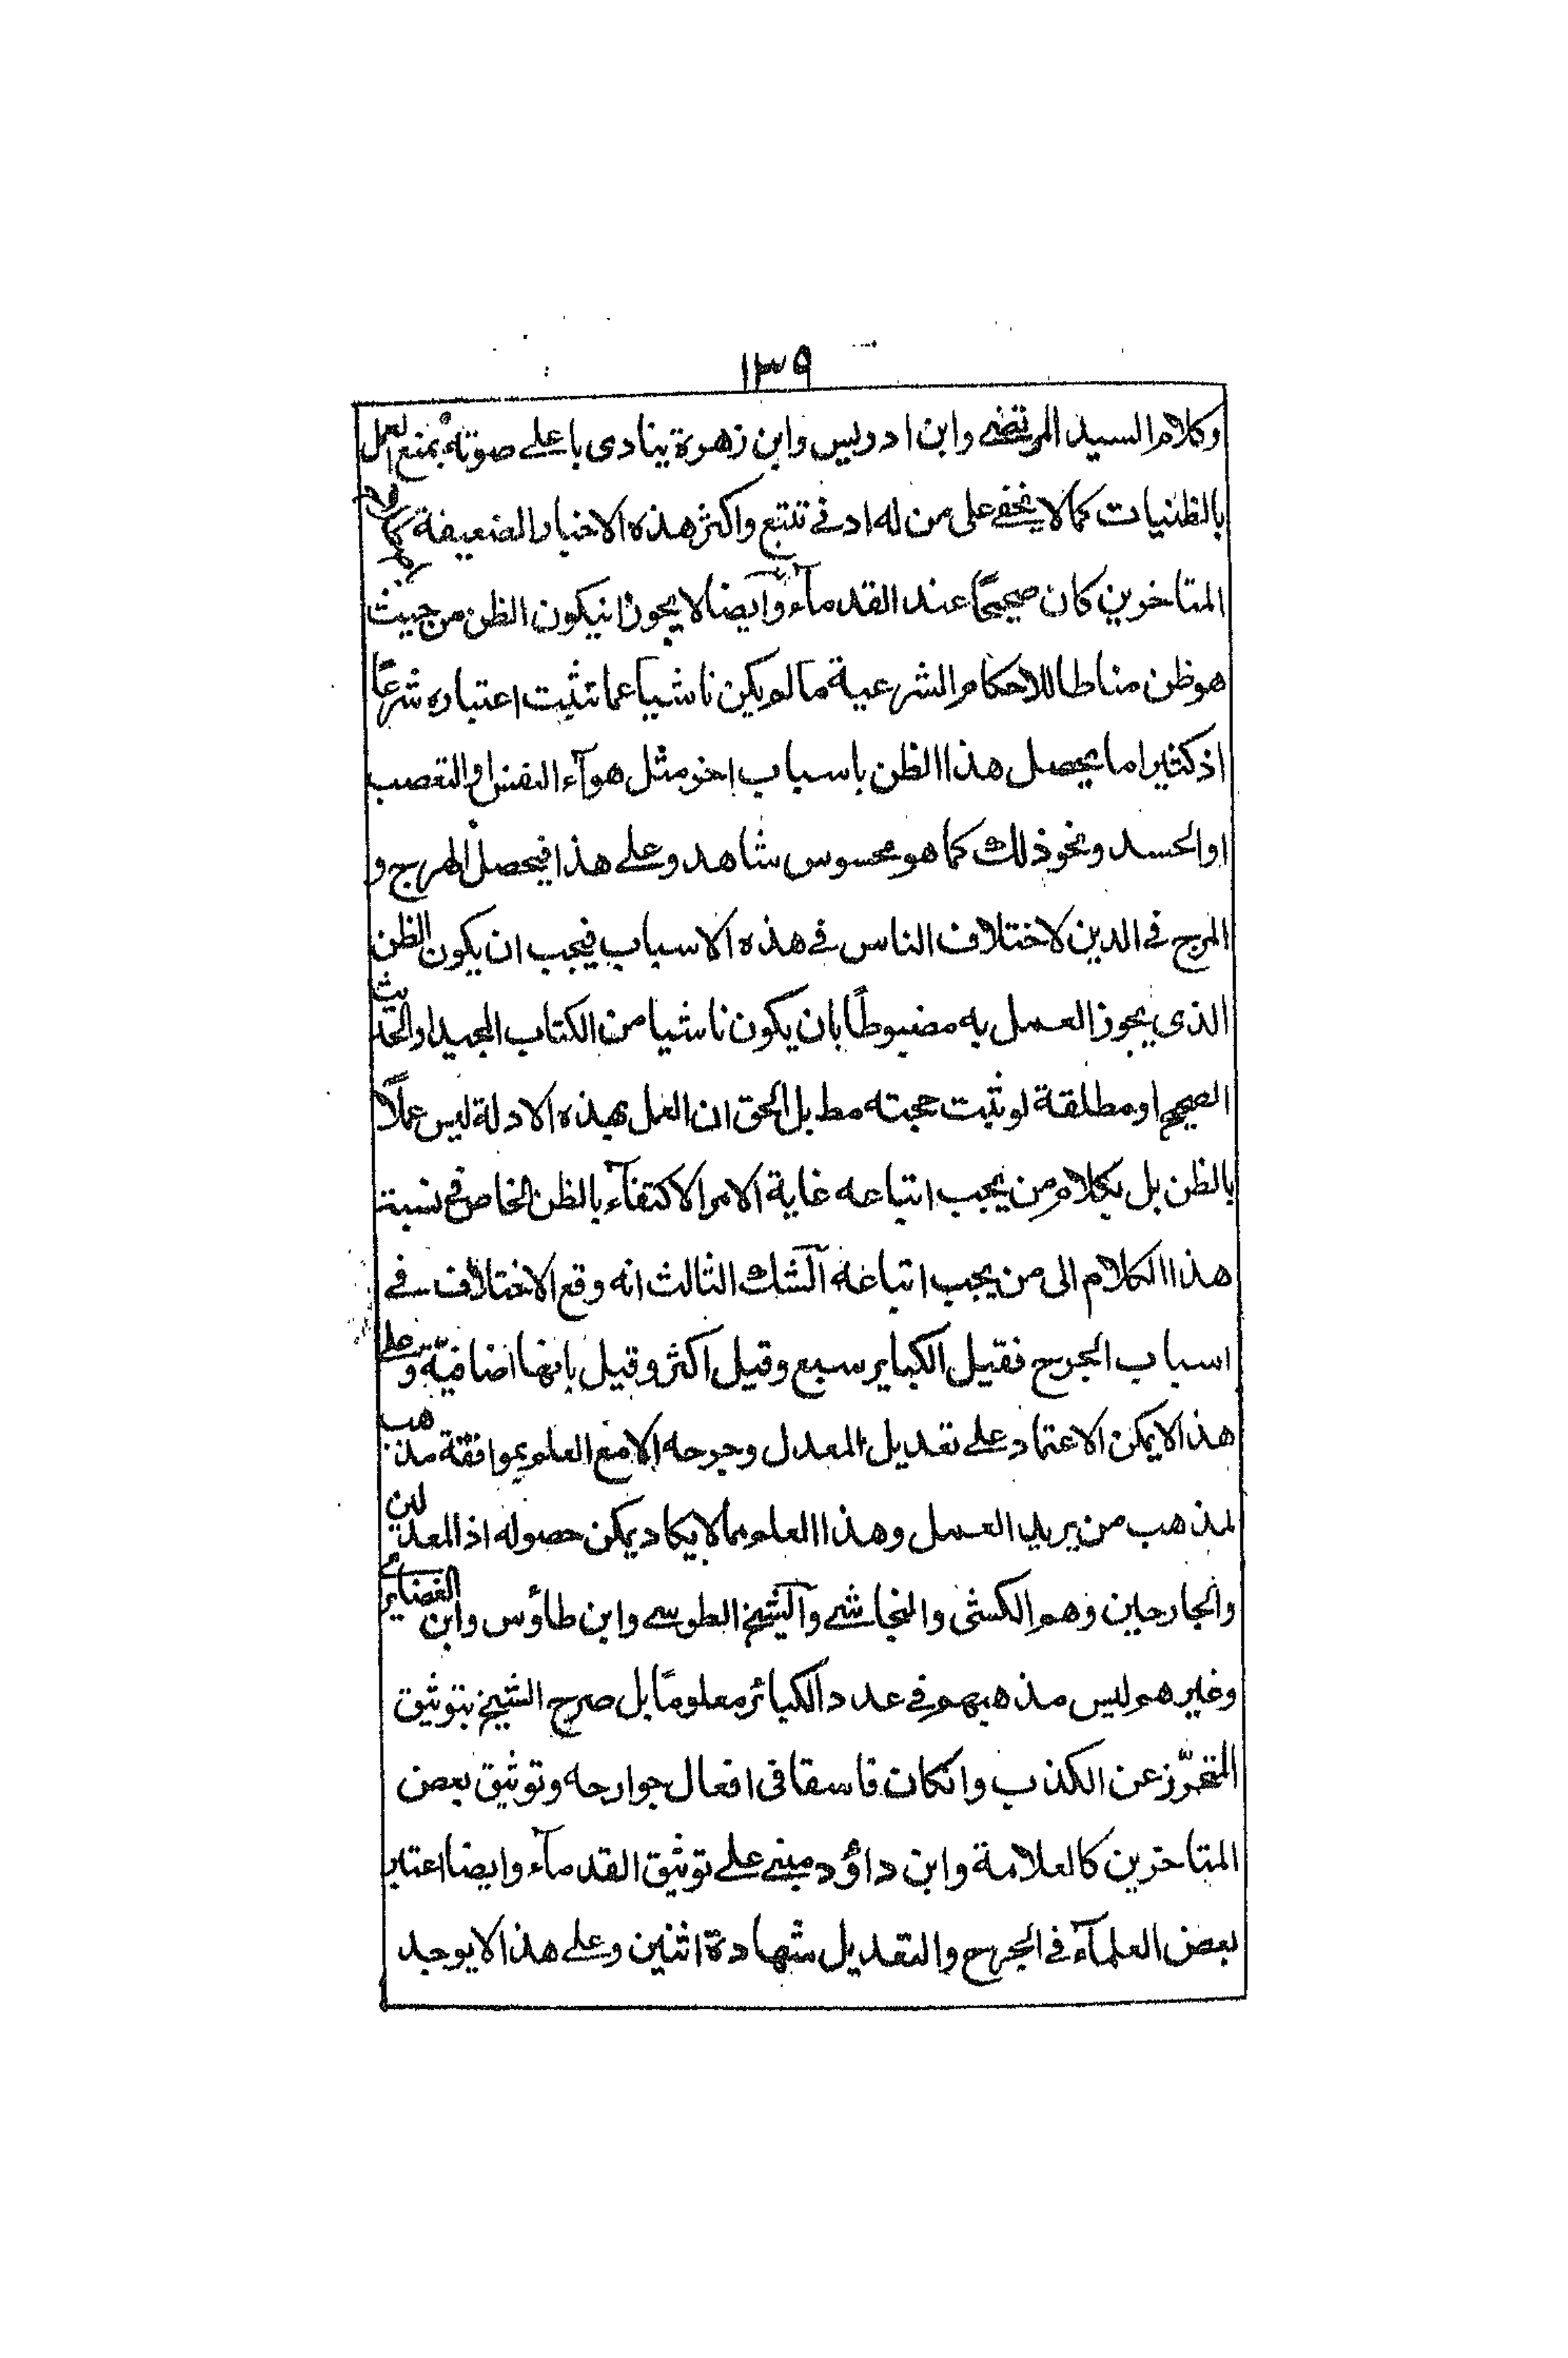 ١٣٩
وكلام السيد المرتضے وابن ادريس وابن زهرة ينادى باعلے صوته بمنع العمل
بالظنيات كما لا يخفے على من له ادنے تتبع واكثر هذه الاخبار الضعيفة
المتاخرين كان صحيحًا عند القدمآء وآيضا لا يجوز انيكون الظن من حيث
هو ظن مناطا للاحكام الشرعية ما لم يكن ناشيا عما تثبت اعتباره شرعًا
اذ كثيرا ما يحصل هذا الظن باسباب اخر مثل هوآء النفس او التعصب
او الحسد ونحو ذلك كما هو محسوس شاهد وعلے هذا فيحصل الهرج و
المرج فے الدين لاختلاف الناس فے هذه الاسباب فيجب ان يكون الظن
الذى يجوز العمل به مضبوطًا بان يكون ناشيا من الكتاب المجيد او الحديث
الصحيح او مطلقة لو ثبت حجيته مط بل الحق ان العمل بهذه الادلة ليس عملًا
بالظن بل بكلام من يجب اتباعه غاية الامر الاكتفآء بالظن الخاص فے نسبة
هذا الكلام الى من يجب اتباعه آلشك الثالث انه وقع الاختلاف فے
اسباب الجرح فقيل الكباير سبع وقيل اكثر وقيل بانها اضافيّة وعلے
هذا لا يمكن الاعتماد علے تعديل المعدل وجرحه الا مع العلم بموافقة مذهب
لمذهب من يريد العمل وهذا العلم مما لا يكاد يمكن حصوله اذ المعدلين
والجارحين وهم الكشى والنجاشے وآلشيخ الطوسے وابن طاؤس وابن الغضايرے
وغيرهم ليس مذهبهم فے عدد الكبائر معلومًا بل صرح الشيخ بتوثيق
المتحرّز عن الكذب وانكان فاسقا فى افعال جوارحه وتوثيق بعض
المتاخرين كالعلامة وابن داؤد مبنے علے توثيق القدمآء وايضا اعتبر
بعض العلمآء فے الجرح والتعديل شهادة اثنين وعلے هذا لا يوجد